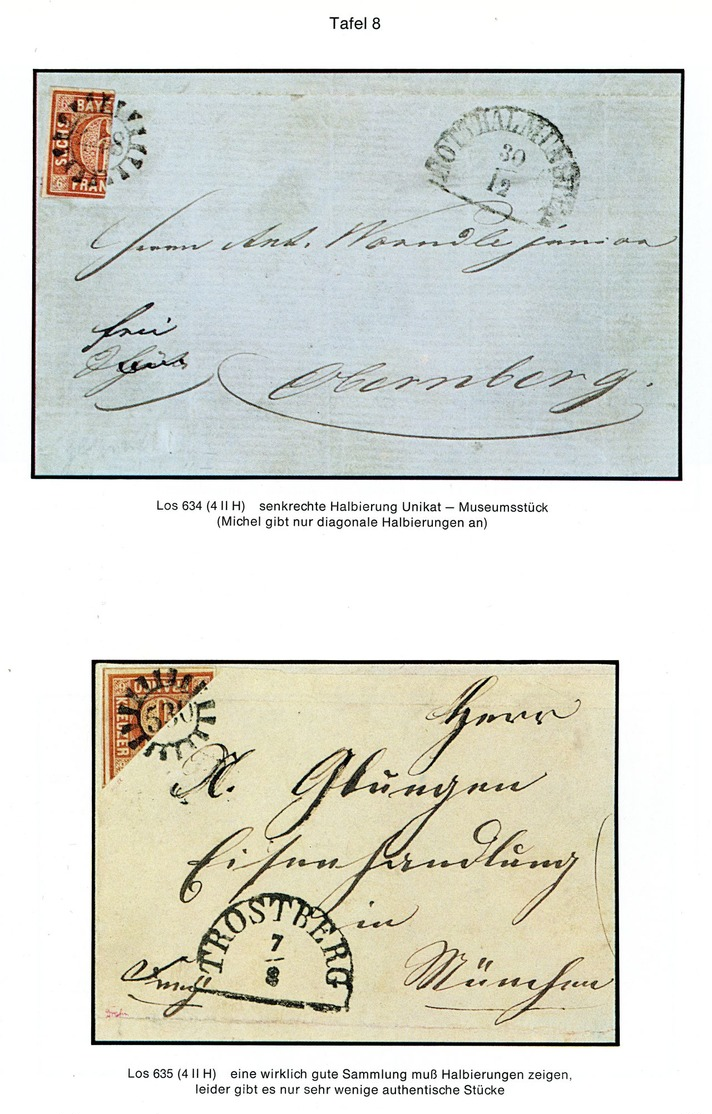 Tafel 8
BAYE
SECHS
6
FRAN
ROTTHALMÜNSTER
30
12
Herrn Ant. Worndle junior
frei
Obernberg.
Los 634 (4 II H) senkrechte Halbierung Unikat – Museumsstück
(Michel gibt nur diagonale Halbierungen an)
530
Herr
Eisenhandlung
in
TROSTBERG
7
8
München
Los 635 (4 II H) eine wirklich gute Sammlung muß Halbierungen zeigen,
leider gibt es nur sehr wenige authentische Stücke